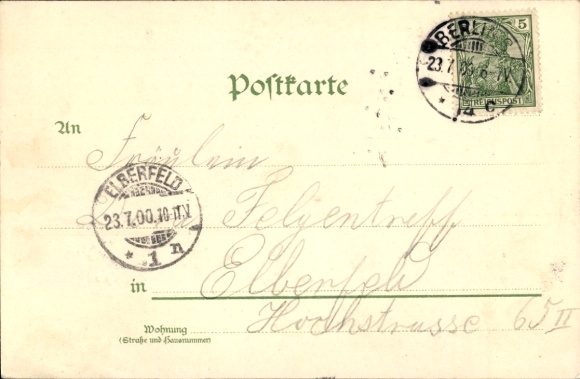 5
REICHSPOST
BERLIN
23.7.00. 6-7V.
* 14 c
Postkarte
An
Fräulein
ELBERFELD
23.7.00.10-11.V.
* 1 n
in Elberfeld
Hochstrasse 65 II
Wohnung
(Straße und Hausnummer)